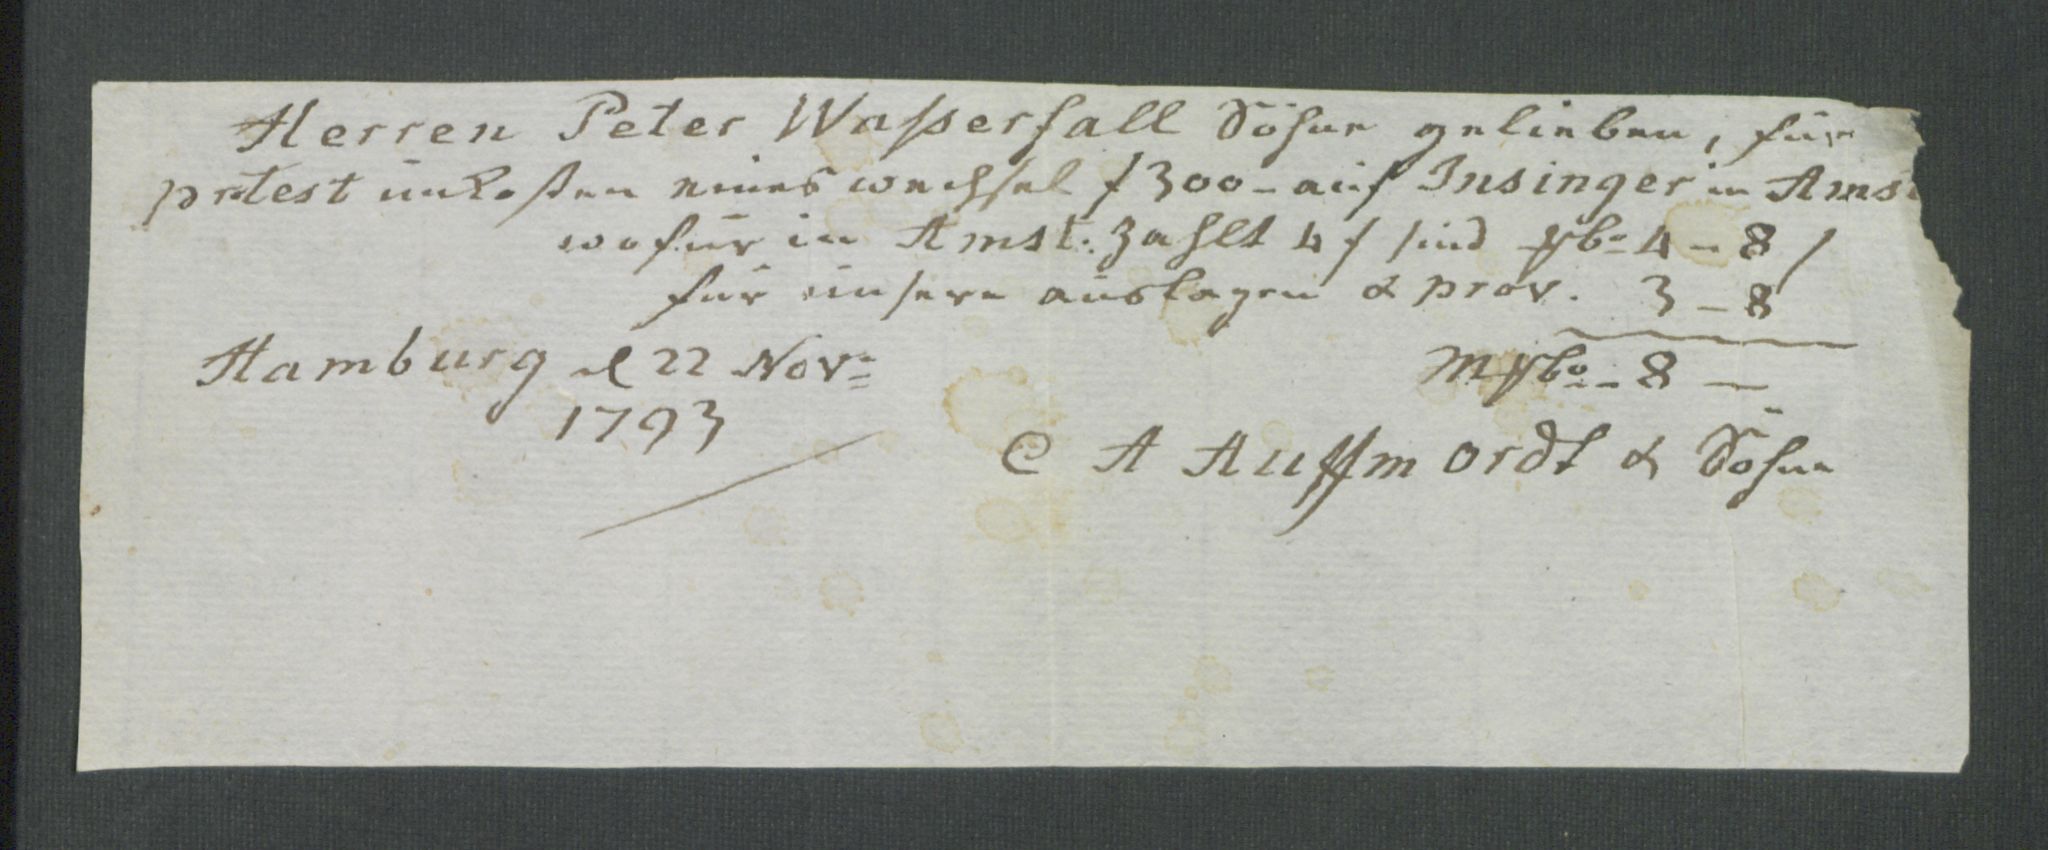 Herren Peter Wasserfall Söhne gelieben, für
protest unkosten eines wechsel f 300 - auf Insinger in Amst
wofür in Amst: zahlt 4 f sind ßbo 4 - 8 /
für unsere auslagen & prov. 3 - 8
Hamburg d 22 Nov:
1793
Mßbo - 8 —
C A Auffmordt & Söhne